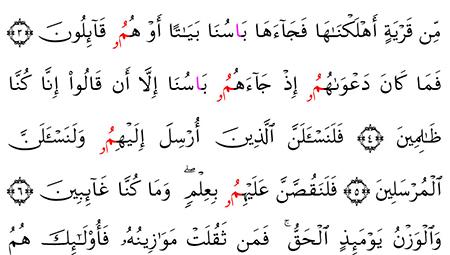 مِّن قَرْيَةٍ أَهْلَكْنَـٰهَا فَجَآءَهَا بَاسُنَا بَيَـٰتًا أَوْ هُمُۥ قَآئِلُونَ ﴿٣﴾
فَمَا كَانَ دَعْوَىٰهُمُۥ إِذْ جَآءَهُمُۥ بَاسُنَا إِلَّا أَن قَالُوا۟ إِنَّا كُنَّا
ظَـٰلِمِينَ ﴿٤﴾ فَلَنَسْـَٔلَنَّ ٱلَّذِينَ أُرْسِلَ إِلَيْهِمُۥ وَلَنَسْـَٔلَنَّ
ٱلْمُرْسَلِينَ ﴿٥﴾ فَلَنَقُصَّنَّ عَلَيْهِمُۥ بِعِلْمٍ ۖ وَمَا كُنَّا غَآئِبِينَ ﴿٦﴾
وَٱلْوَزْنُ يَوْمَئِذٍ ٱلْحَقُّ ۚ فَمَن ثَقُلَتْ مَوَٰزِينُهُۥ فَأُو۟لَـٰٓئِكَ هُمُ